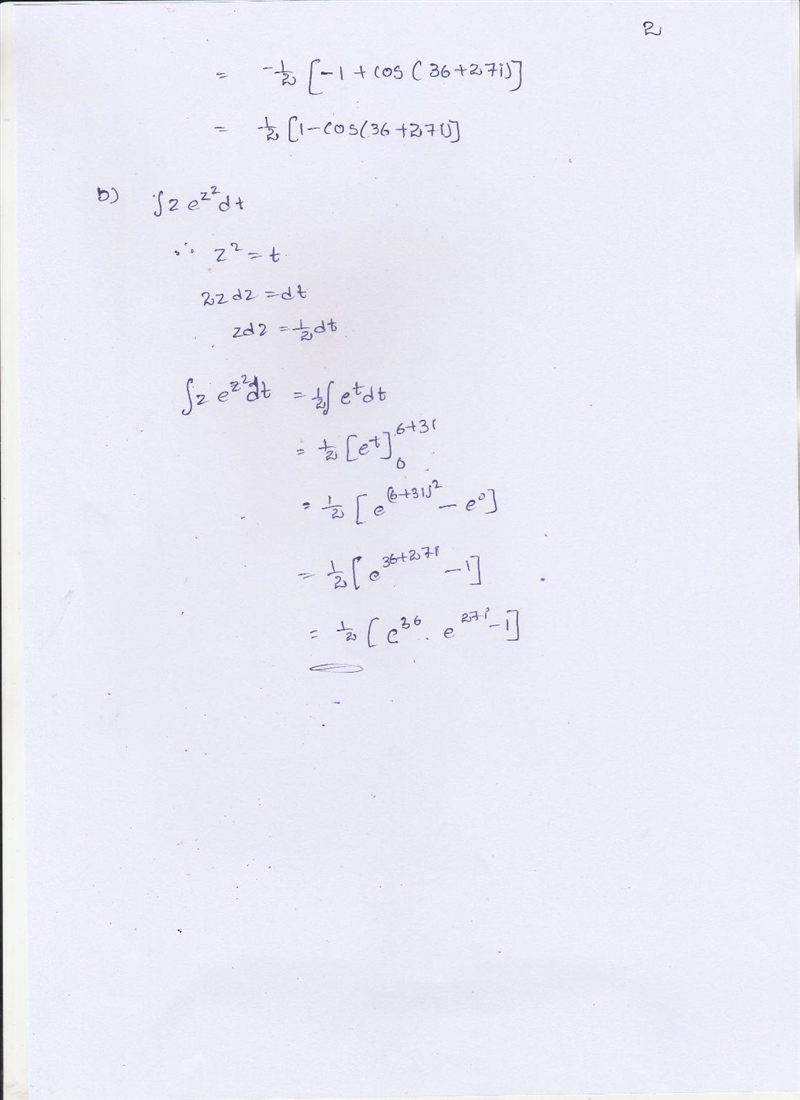 2
= -1/2 [-1 + cos(36+27i)]
= 1/2 [1-cos(36+27i)]
b) ∫z e^z² dt
∴ z² = t
2z dz = dt
zdz = 1/2 dt
∫z e^z² dt = 1/2 ∫ e^t dt
= 1/2 [e^t]_0^6+3i
= 1/2 [e^(6+3i)² - e^0]
= 1/2 [e^36+27i - 1]
= 1/2 [e^36 . e^27i - 1]